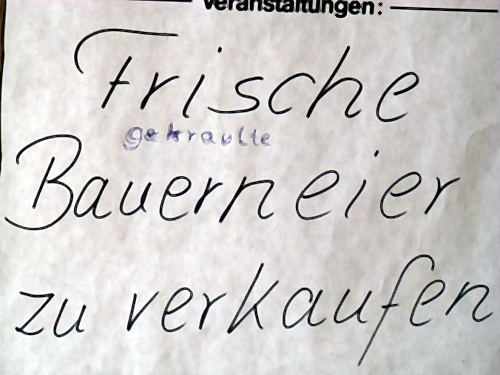 Veranstaltungen:
Frische
gekraulte
Bauerneier
zu verkaufen